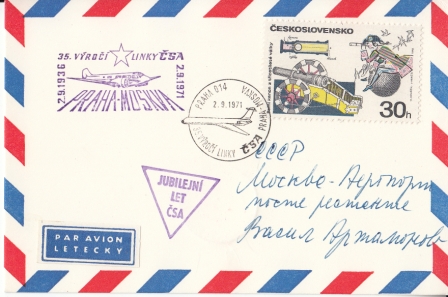 35. VÝROČÍ LINKY ČSA
2.9.1936
2.9.1971
PRAHA-MOSKVA
PRAHA 014
2.9.1971
35 VÝROČÍ LINKY ČSA PRAHA-MOSKVA
ČESKOSLOVENSKO
30h
JUBILEJNÍ
LET
ČSA
PAR AVION
LETECKY
СССР
Москва-Аеропорт
посте рестанте
Васил Артаморов